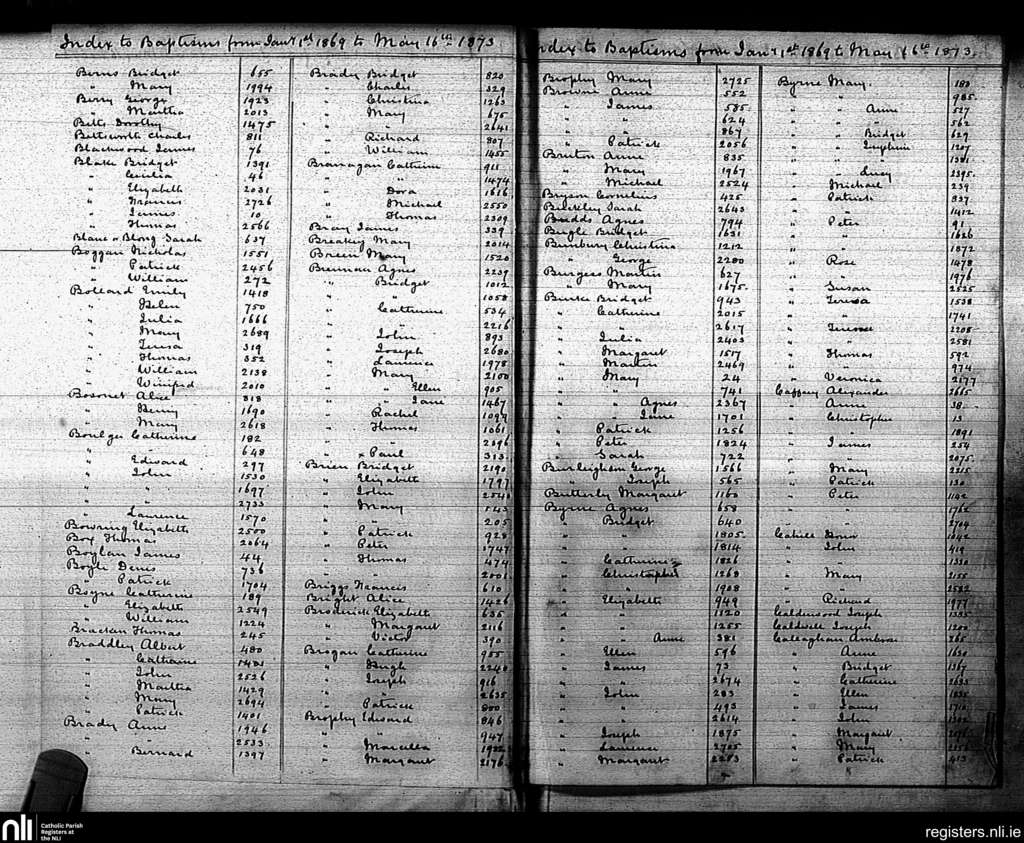 Index to Baptisms from Jany 1st 1869 to May 16th 1873
Berns Bridget 655
" Mary 1994
Berry George 1923
" Martha 2013
Betts Dorothy 1475
Bettsworth Charles 811
Blackwood James 76
Blake Bridget 1391
" Cecilia 46
" Elizabeth 2031
" Frances 2726
" James 10
" Thomas 2566
Blane or Blong Sarah 637
Boggan Nicholas 1551
" Patrick 2456
" William 272
Bollard Emily 1418
" Helen 750
" Julia 1666
" Mary 2689
" Teresa 319
" Thomas 352
" William 2138
" Winifred 2010
Bosonet Alice 818
" Henry 1690
" Mary 2618
Boulger Catherine 182
" " 648
" Edward 297
" John 1530
" " 1697
" " 2733
" Laurence 1570
Bowring Elizabeth 2500
Box Thomas 2064
Boylan James 44
Boyle Denis 736
" Patrick 1704
Boyne Catherine 189
" Elizabeth 2549
" William 1224
Bracken Thomas 245
Braddley Albert 480
" Catharine
" John 2526
" Martha 1429
" Mary 2694
" Patrick 1401
Brady Anne 1946
" " 2533
" Bernard 1397
Brady Bridget 820
" Charles 329
" Christina 1263
" Mary 675
" " 2641
" Richard 807
" William 1455
Branagan Catherine 911
" " 1474
" Dora 1616
" Michael 2550
" Thomas 2309
Bray James 339
Breakey Mary 2014
Breen Mary 1520
Brennan Agnes 2239
" Bridget 1012
" " 1058
" Catherine 534
" " 2216
" John 893
" Joseph 2680
" Laurence 1978
" Mary 2100
" " Ellen 905
" " Jane 1467
" Rachel 1099
" Thomas 1061
" " 2396
" Paul 313
Brien Bridget 2190
" Elizabeth 1797
" John 2540
" Mary 143
" " 205
" Patrick 928
" Peter 1747
" Thomas 474
" " 2001
Briggs Francis 610
Bright Alice 1426
Broderick Elizabeth 635
" Margaret 2116
" Victor 390
Brogan Catherine 955
" Hugh 2248
" Joseph 916
" " 2635
" Patrick 800
Brophy Edward 846
" " 947
" Marcella 1922
" Margaret 2176
Index to Baptisms from Jany 1st 1869 to May 16th 1873
Brophy Mary 2725
Browne Anne 552
" James 585
" " 624
" " 867
" Patrick 2056
Bruton Anne 835
" Mary 1967
" Michael 2524
Bryson Cornelius 425
Buckley Sarah 2643
Budds Agnes 794
Bugle Bridget 1631
Bunbury Christina 1212
" George 2280
Burgess Martin 627
" Mary 1675
Burke Bridget 943
" Catherine 2015
" " 2617
" Julia 2403
" Margaret 1517
" Martin 2469
" Mary 24
" " 741
" " Agnes 2367
" " Jane 1701
" Patrick 1256
" Peter 1824
" Sarah 722
Burleigham George 1566
" Joseph 565
Butterly Margaret 1160
Byrne Agnes 658
" Bridget 640
" " 1805
" " 1814
" Catherine 1826
" Christopher 1268
" " 1908
" Elizabeth 949
" " 1120
" " 1255
" " Anne 381
" Ellen 596
" James 73
" " 2674
" John 283
" " 493
" " 2614
" Joseph 1875
" Laurence 2705
" Margaret 2283
Byrne Mary 180
" " 985
" " Anne 527
" " " 562
" " Bridget 629
" " Josephine 1207
" " " 1381
" " Lucy 2395
" Michael 239
" Patrick 837
" " 1412
" Peter 91
" " 1626
" " 1872
" Rose 1478
" " 1976
" Susan 2525
" Teresa 1538
" " 1741
" Teresa 2208
" " 2581
" Thomas 592
" " 974
" Veronica 2177
Caffery Alexander 2665
" Anne 38
" Christopher 13
" " 1891
" James 254
" " 2075
" Mary 2215
" Patrick 130
" Peter 1142
" " 1762
" " 2704
Cahill Honor 1042
" John 419
" " 1330
" Mary 2155
" " 2582
" Richard 1977
Calderwood Joseph 1335
Caldwell Joseph 1200
Callaghan Ambrose 265
" Anne 1630
" Bridget 1367
" Catherine 2633
" Ellen 1835
" James 1710
" John 1302
" Margaret
" Mary 2156
" Patrick 413
nli Catholic Parish
Registers at
the NLI
registers.nli.ie